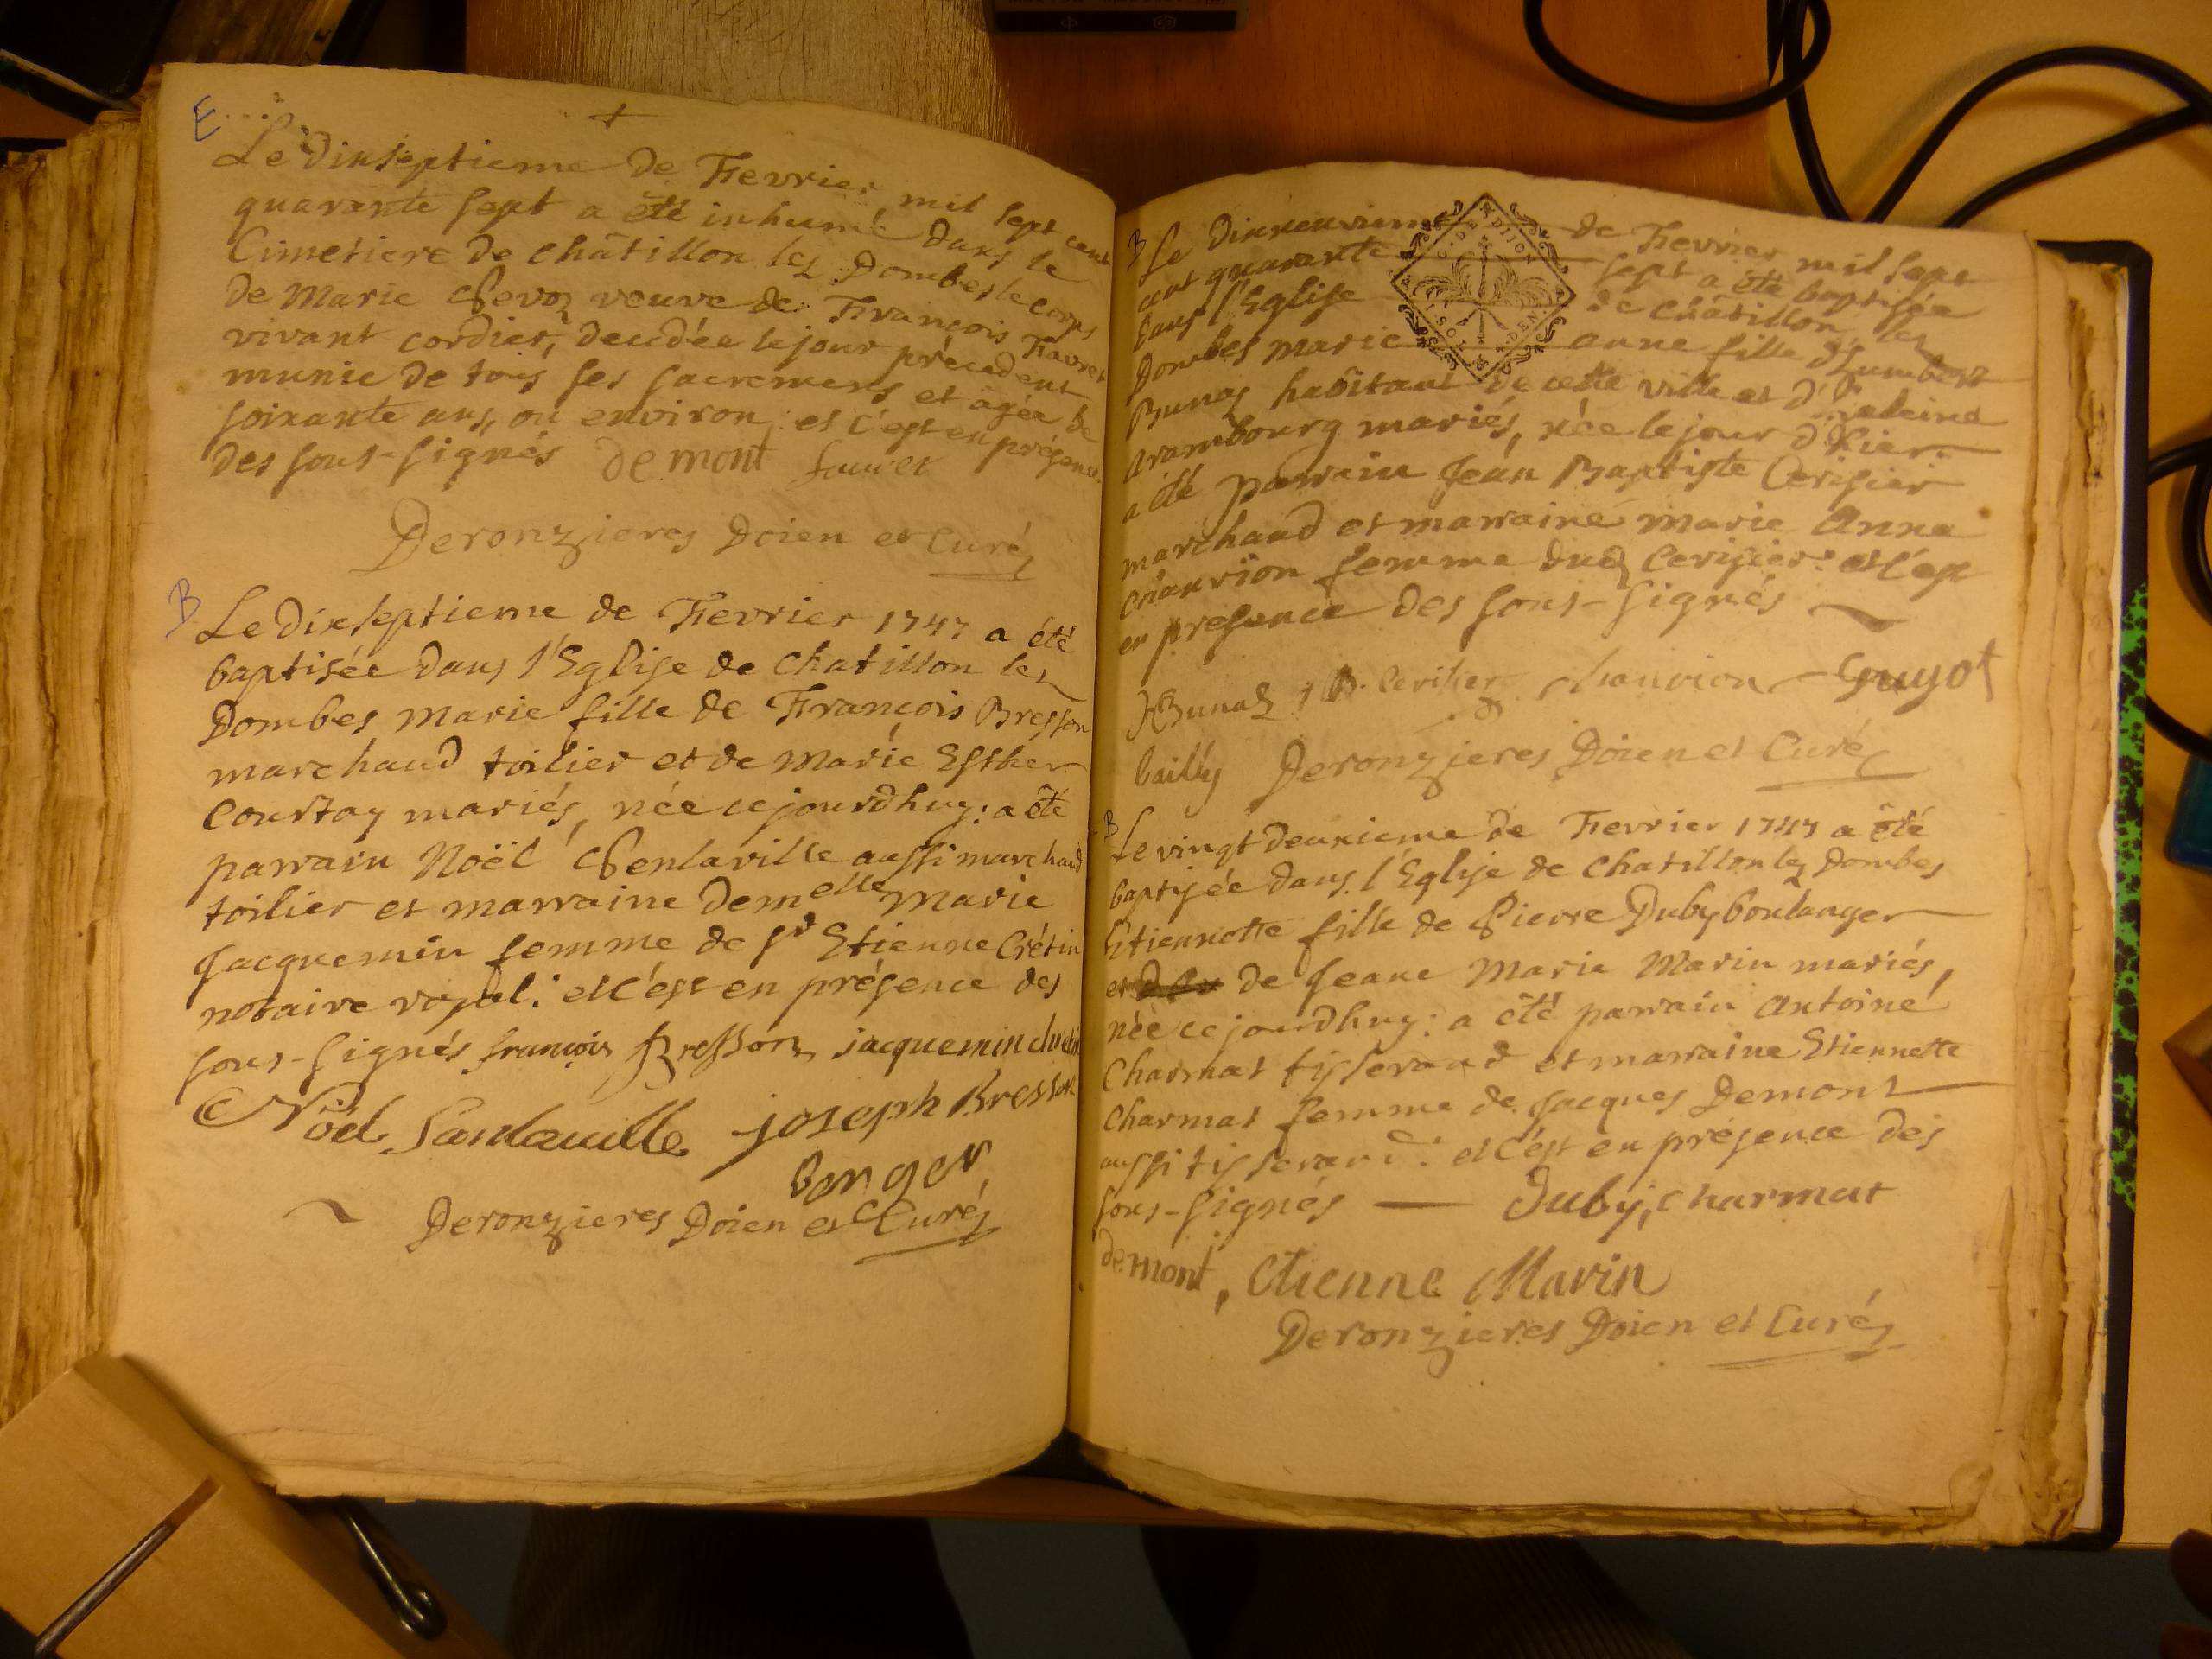 E
Le dixseptieme de Fievrier mil sept cent
quarante sept a été inhumé dans le
Cimetiere de châtillon lez Dombes le corps
de Marie Pevoz veuve de François Favret
vivant cordier, decedée le jour précedent
munie de tous ses sacremens et agée de
soixante ans, ou environ : et c'est en présence
des sous-signés demont favret
Deronzieres Doien et Curé
B
Le dixseptieme de Fievrier 1747 a été
baptisée dans l'Eglise de Chatillon lez
Dombes Marie fille de François Bresson
marchand toilier et de Marie Esther
Courtay mariés, née cejourdhuy : a été
parrain Noël Penlaville aussi marchand
toilier et marraine Demelle Marie
Jacquemin femme de Sr Etienne Crétin
notaire royal : et c'est en présence des
sous-signés françois Bresson jacquemin
Noël joseph Bresson
Deronzieres Doien et Curé
B
Le dixneuvieme de Fievrier mil sept
cent quarante sept a été baptisée
dans l'Eglise de Châtillon lez
Dombes Marie anne fille d'humbert
Bunaz habitant de cette ville et d'
arambourg mariés, née le jour d'hier
a été parrain Jean Baptiste Cerisier
marchand et marraine Marie Anne
chauvion femme dud Cerisier : et c'est
en presence des sous-signés
HBunaz JB. Cerisier chauvion Guyot
bailly Deronzieres Doien et Curé
G. DE DIJON
SOL DEN
B
Le vingt deuxieme de Fievrier 1747 a été
baptisée dans l'Eglise de Chatillon lez Dombes
Etiennette fille de Pierre Duby boulanger
et de Jeane Marie Marin mariés,
née cejourdhuy : a été parrain Antoine
Charmat tisserand et marraine Etiennette
Charmat femme de Jacques Demont
aussi tisserand : et c'est en présence des
sous-signés Duby, charmat
demont, Etienne Marin
Deronzieres Doien et Curé